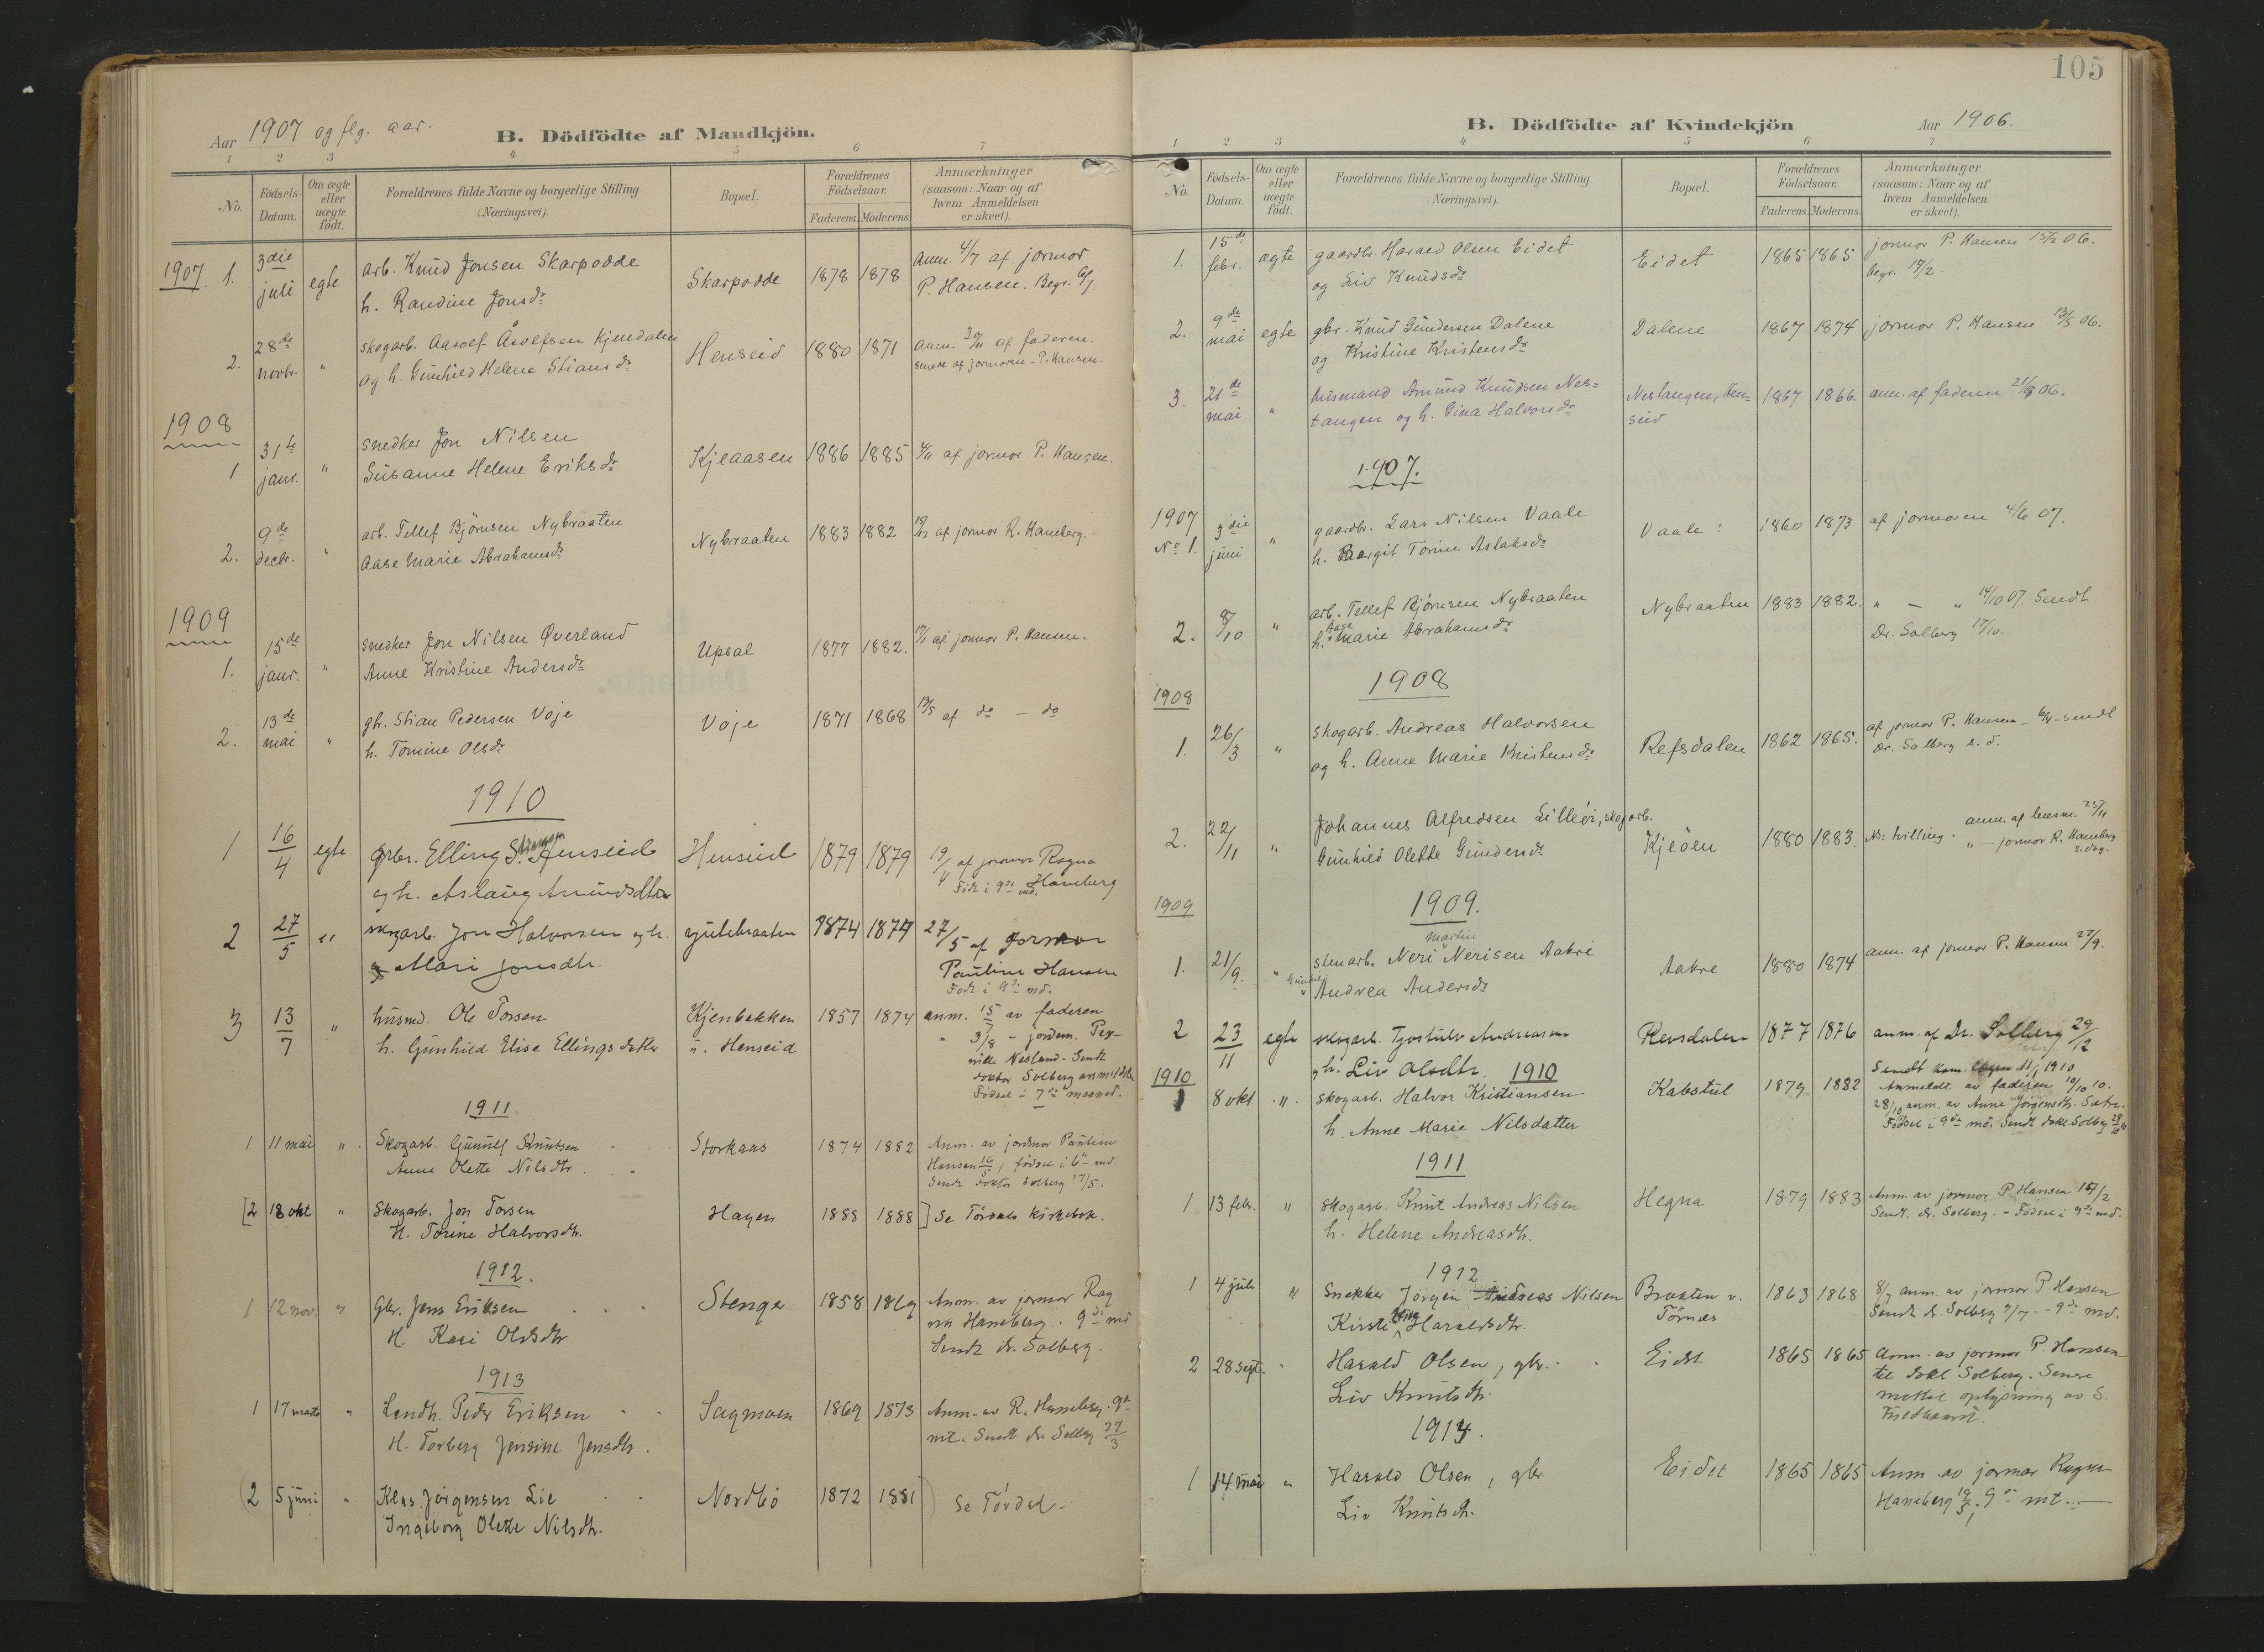 Aar 1907 og flg. aar.
B. Dödfödte af Mandkjön.
1 2 3 4 5 6 7
No.
Födsels-Datum.
Om ægte eller uægte födt.
Forældrenes fulde Navne og borgerlige Stilling (Næringsvei).
Bopæl.
Forældrenes Födselsaar.
Faderens. Moderens.
Anmærkninger (saasom: Naar og af hvem Anmeldelsen er skeet).
1907. 1. 3die juli egte arb. Knud Jonsen Skarpodde Skarpodde 1878 1878 Anm. 4/7 af jormor
h. Randine Jonsdr P. Hansen. Begr. 6/7.
2. 28de novbr. " skogarb. Aasolf Åsolfsen Kjendalen Henseid 1880 1871 anm. 30/11 af faderen.
og h. Gunhild Helene Stiansdr senere af jormoren - P. Hansen.
1908
1 31te janr. " snedker Jon Nilsen Kjeaasen 1886 1885 af jormor P. Hansen.
Susanne Helene Eriksdr
2. 9de decbr. " arb. Tellef Björnsen Nybraaten Nybraaten 1883 1882 af jormor R. Haneberg.
Aase Marie Abrahamsdr
1909
1. 15de janr. " snedker Jon Nilsen Øverland Upsal 1877 1882. af jormor P. Hansen.
Anne Kristine Andersdr
2. 13de mai " gbr. Stian Pedersen Voje Voje 1871 1868 13/5 af do - do
h. Tomine Olsdr
1910
1 16/4 egte gbr. Elling S. Henseid Henseid 1879 1879 19/4 af jormor Ragna
og h. Aslaug Amundsdtr Födt i 9de md. Haneberg
2 27/5 " skogarb. Jon Halvorsen og h. 1874 1874 27/5 af jormor
Mari Jonsdtr. Pauline Hansen
Födt i 9de md.
3 13/7 " husmd. Ole Torsen Kjenbakken 1857 1874 anm. 15/7 av faderen
h. Gunhild Elise Ellingsdatter u. Henseid " 3/8 - jordem. Per-
nille Nesland - Sendt
doktor Solberg anmeldelse
Födsel i 7de maaned.
1911.
1 11 mai " Skogarb. Gunnulf Knutsen Storkaas 1874 1882 Anm. av jordmor Pauline
Anne Olette Nilsdtr. Hansen 16/5; födsel i 6te md.
Sendt doktor Solberg 17/5.
[2 18 okt " Skogarb. Jon Torsen Hagen 1888 1888] Se Tördals kirkebok.
H. Torine Halvorsdtr.
1912.
1 12 nov. " Gbr. Jens Eriksen Stenger 1858 1869 Anm. av jormor Rag
H. Kari Olsdtr na Haneberg. 9de md
Sendt dr. Solberg.
1913
1 17 marts " Landh. Peder Eriksen Sagmoen 1869 1873 Anm. av R. Haneberg. 9de
H. Torberg Jensine Jensdtr. mt. Sendt dr. Solberg 27/3
(2 5 juni " Klas Jörgensen Lie Nordbö 1872 1881) Se Tördal.
Ingeborg Olette Nilsdtr.
105
B. Dödfödte af Kvindekjön
Aar 1906.
1 2 3 4 5 6 7
No.
Födsels-Datum.
Om ægte eller uægte födt.
Forældrenes fulde Navne og borgerlige Stilling (Næringsvei).
Bopæl.
Forældrenes Födselsaar.
Faderens. Moderens.
Anmærkninger (saasom: Naar og af hvem Anmeldelsen er skeet).
1. 15de febr. ægte gaardbr. Harald Olsen Eidet Eidet 1865 1865 jormor P. Hansen 15/2 06.
og Liv Knudsdr begr. 17/2.
2. 9de mai egte gbr. Knud Gundersen Dalene Dalene 1867 1874 jormor P. Hansen 13/5 06.
og Kristine Kristensdr
3. 21de mai " husmand Amund Knudsen Nes= Neslangen, Hen= 1867 1866. anm. af faderen 06.
tangen og h. Gina Halvorsdr seid
1907.
1907 No 1. 3die juni " gaardbr. Lars Nilsen Vaale Vaale: 1860 1873 af jormoren 4/6 07.
h. Bergit Torine Aslaksdr
2. 8/10 " arb. Tellef Björnsen Nybraaten Nybraaten 1883 1882. " - " 14/10 07. Sendt
h. Aase Marie Abrahamsdr Dr. Solberg 17/10.
1908
1908
1. 26/3 " skogarb. Andreas Halvorsen Refsdalen 1862 1865. af jormor P. Hansen - 6/4 - sendt
og h. Anne Marie Kristensdr Dr. Solberg s. d.
2. 22/11 " Johannes Alfredsen Lilleöi, skogarb. Kjeöen 1880 1883. NB: tvilling. anm. af lensm. 25/11
Gunhild Olette Gundersdr " - jormor R. Haneberg s. dag.
1909 1909.
1. 21/9. " stenarb. Neri Martin Nerisen Aakre Aakre 1880 1874 anm. af jormor P. Hansen 27/9.
Gunhild Andrea Andersdr
2 23/11 egte skogarb. Tjostulv Andreasen Revsdalen 1877 1876 anm. af Dr. Solberg 29/12
og h. Liv Olsdtr. Sendt kom. 11/1 1910
1910 1910
1 8 okt " skogarb. Halvor Kristiansen Kabstul 1879 1882 Anmeldt av faderen 10/10 10.
h. Anne Marie Nilsdatter 28/10 anm. av Anne Jörgensdtr. Sætre.
Födsel i 9de md. Sendt dokt. Solberg
1911
1 13 febr. " skogarb. Knut Andreas Nilsen Hegna 1879 1883 Anm. av jormor P. Hansen
h. Helene Andreasdtr. Sendt. dr. Solberg. - Födsel i 9de md.
1912
1 4 juli " Snekker Jörgen Andreas Nilsen Braaten v. 1863 1868 8/7 anm. av jormor P Hansen
Kirsti Haraldsdtr. Törnes Sendt dr. Solberg 9/7. - 9de md.
2 28 sept. " Harald Olsen, gbr. Eidet 1865 1865 Anm. av jormor P. Hansen
Liv Knutsdtr. til dokt Solberg. Senere
mottat oplysning av S.
1914.
1 14 mai " Harald Olsen, gbr. Eidet 1865 1865 Anm. av jormor Ragna
Liv Knutsdtr. Haneberg 19/5, 9de mt.